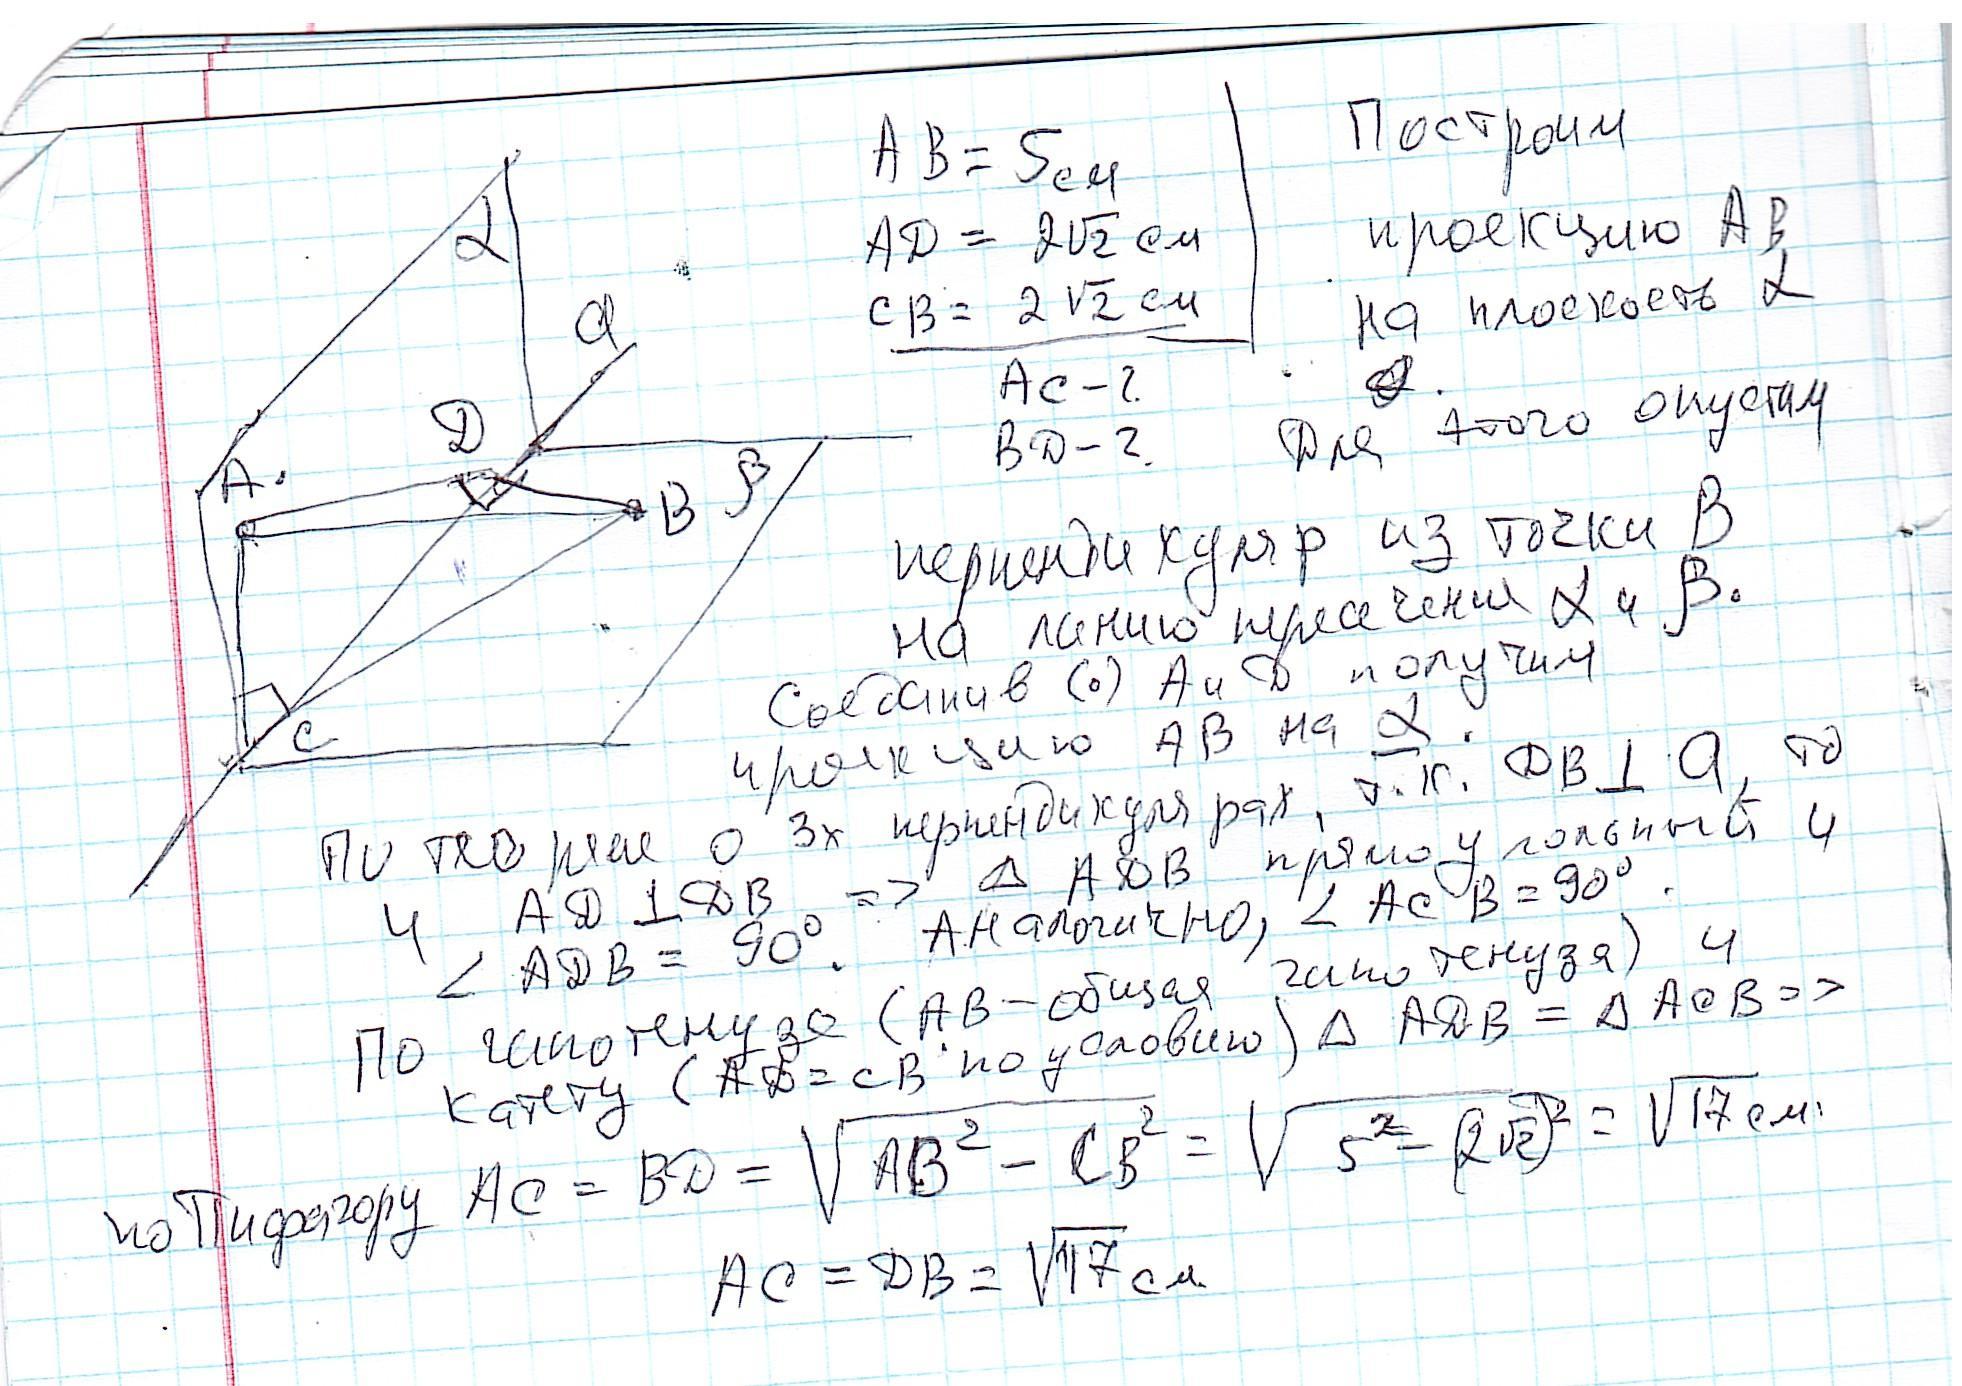 α
a
D
A.
B
β
C
AB = 5 см
AD = 2√2 см
CB = 2√2 см
AC - ?
BD - ?
Построим
проекцию AB
на плоскость α
Для этого опустим
перпендикуляр из точки B
на линию пересечения α и β.
Соединив (·) A и D получим
проекцию AB на α.
По теореме о 3х перпендикулярах, т.к. DB ⊥ a, то
и AD ⊥ DB => Δ ADB прямоугольный и
∠ ADB = 90°. Аналогично, ∠ ACB = 90°.
По гипотенузе (AB - общая гипотенуза) и
катету (AD = CB по условию) Δ ADB = Δ ACB =>
по Пифагору AC = BD = √AB² - CB² = √5² - (2√2)² = √17 см.
AC = DB = √17 см